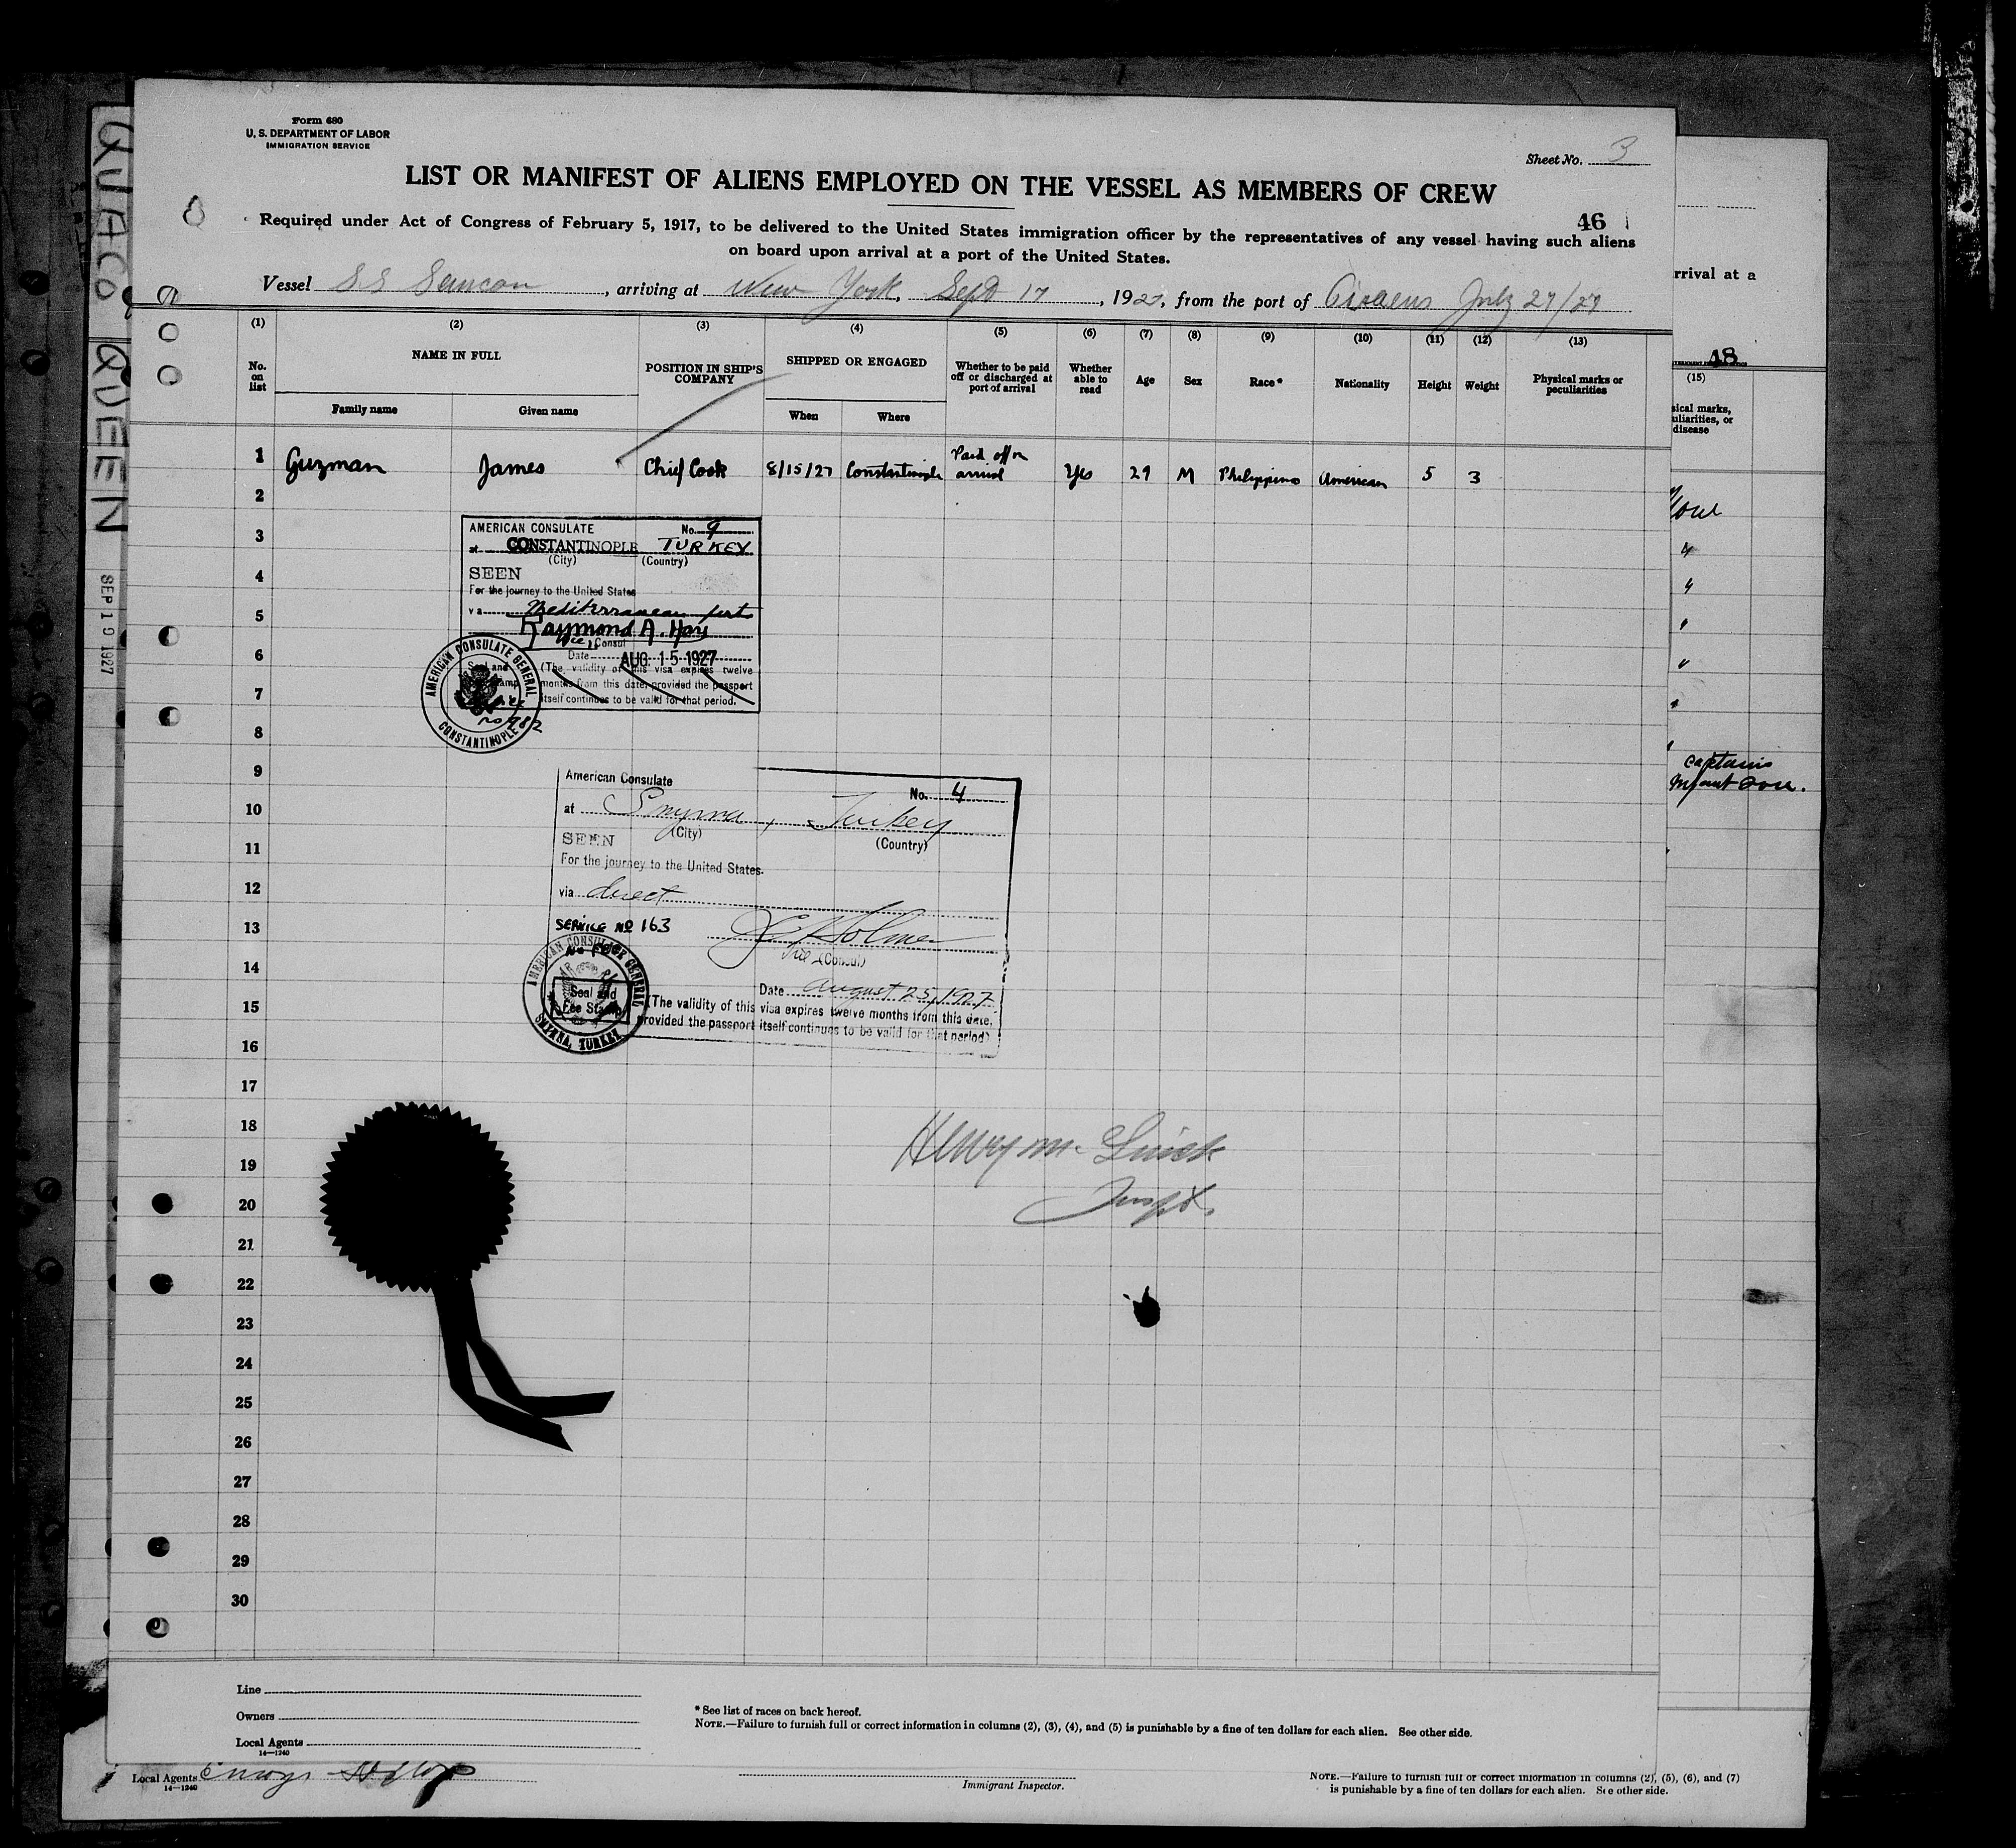 Form 680
U. S. DEPARTMENT OF LABOR
IMMIGRATION SERVICE
Sheet No. 3
LIST OR MANIFEST OF ALIENS EMPLOYED ON THE VESSEL AS MEMBERS OF CREW
46
Required under Act of Congress of February 5, 1917, to be delivered to the United States immigration officer by the representatives of any vessel having such aliens
on board upon arrival at a port of the United States.
Vessel S.S. , arriving at New York, Sept 17, 1927, from the port of July 27/27
(1) (2) (3) (4) (5) (6) (7) (8) (9) (10) (11) (12) (13)
No. on list
NAME IN FULL
Family name Given name
POSITION IN SHIP'S COMPANY
SHIPPED OR ENGAGED
When Where
Whether to be paid off or discharged at port of arrival
Whether able to read
Age
Sex
Race*
Nationality
Height
Weight
Physical marks or peculiarities
1 Guzman James Chief Cook 8/15/27 Constantinople Paid off on arrival Yes 29 M Philippino American 5 3
2
3
4
5
6
7
8
9
10
11
12
13
14
15
16
17
18
19
20
21
22
23
24
25
26
27
28
29
30
AMERICAN CONSULATE No. 9
at CONSTANTINOPLE TURKEY
(City) (Country)
SEEN
For the journey to the United States
via Mediterranean port
Raymond A. Hare
Vice Consul
Date AUG 15 1927
(The validity of this visa expires twelve
months from this date, provided the passport
itself continues to be valid for that period.
Seal and
AMERICAN CONSULATE GENERAL
CONSTANTINOPLE
No 982
American Consulate
No. 4
at Smyrna, Turkey
(City) (Country)
SEEN
For the journey to the United States.
via direct
SERVICE No 163
Vice (Consul)
No FEE
Seal and
Fee Stamp
AMERICAN CONSULATE GENERAL
SMYRNA, TURKEY
Date August 25, 1927
(The validity of this visa expires twelve months from this date,
provided the passport itself continues to be valid for that period)
Henry M.
Inspt.
Line
Owners
Local Agents
14—1240
* See list of races on back hereof.
NOTE.—Failure to furnish full or correct information in columns (2), (3), (4), and (5) is punishable by a fine of ten dollars for each alien. See other side.
Local Agents
14—1240
Immigrant Inspector.
NOTE.—Failure to furnish full or correct information in columns (2), (5), (6), and (7)
is punishable by a fine of ten dollars for each alien. See other side.
QUACO QUEEN
SEP 19 1927
rrival at a
48
(15)
sical marks,
uliarities, or
disease
captains
Infant son.